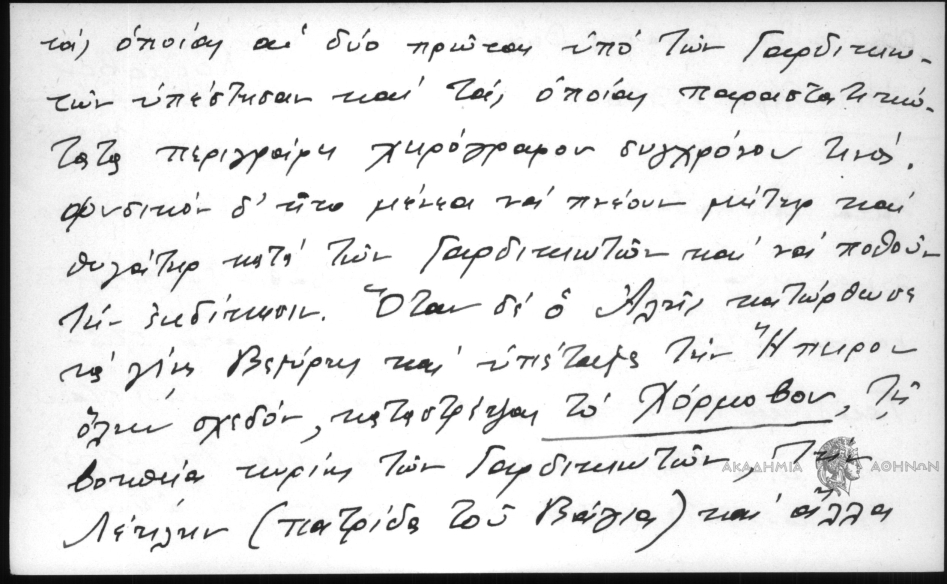 τάς ὁποίας αἱ δύο πρῶται ὑπό τῶν Γαρδικιω-
τῶν ὑπέστησαν καί τάς ὁποίας παραστατικώ-
τατα περιγράφει χειρόγραφον συγχρόνου τινός.
φυσικόν δ' ἦτο μένεα νά πνέουν μήτηρ καί
θυγάτηρ κατά τῶν Γαρδικιωτῶν καί νά ποθοῦν
τήν ἐκδίκησιν. Ὅταν δέ ὁ Ἀλῆς κατώρθωσε
νά γίνῃ Βεζύρης καί ὑπέταξε τήν Ἤπειρον
ὅλην σχεδόν, καταστρέψας τό Χόρμοβον, τῇ
βοηθείᾳ κυρίως τῶν Γαρδικιωτῶν, τήν
Λέκλην (πατρίδα τοῦ Βάγια) καί ἄλλα
ΑΚΑΔΗΜΙΑ ΑΘΗΝΩΝ